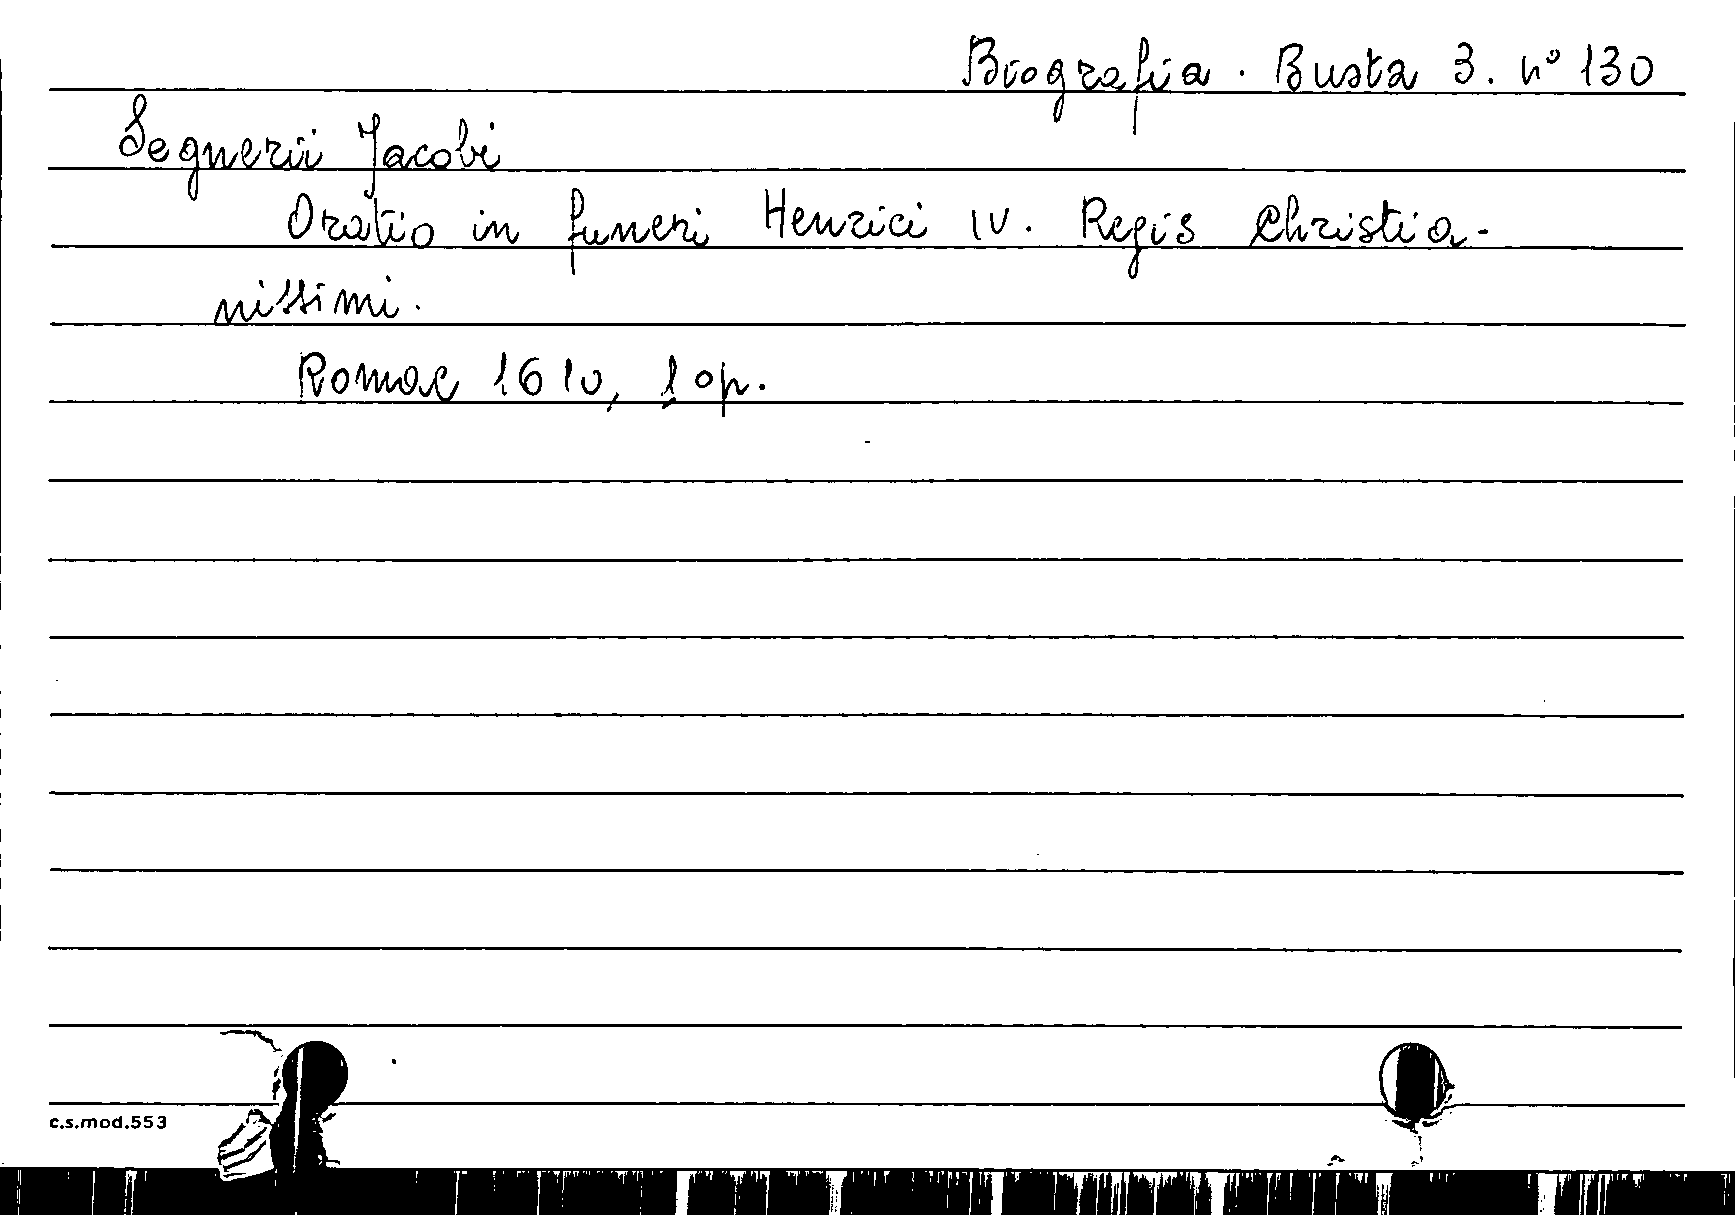 Biografia. Busta 3. n° 130
Segnerii Jacobi
Oratio in funeri Henrici IV. Regis Christia-
nissimi.
Romae 1610, 1 op.
c.s.mod.553